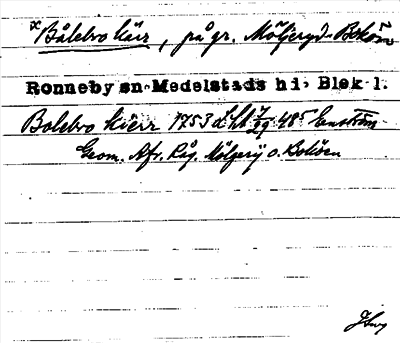 x Bålebro kärr, på gr. Möljeryd-Boköen
Ronneby sn. Medelstads hd. Blek. l.
Bolebro kierr 1753 485 Enström
Geom. Afr. Råg. Mölgerÿ o. Boköen